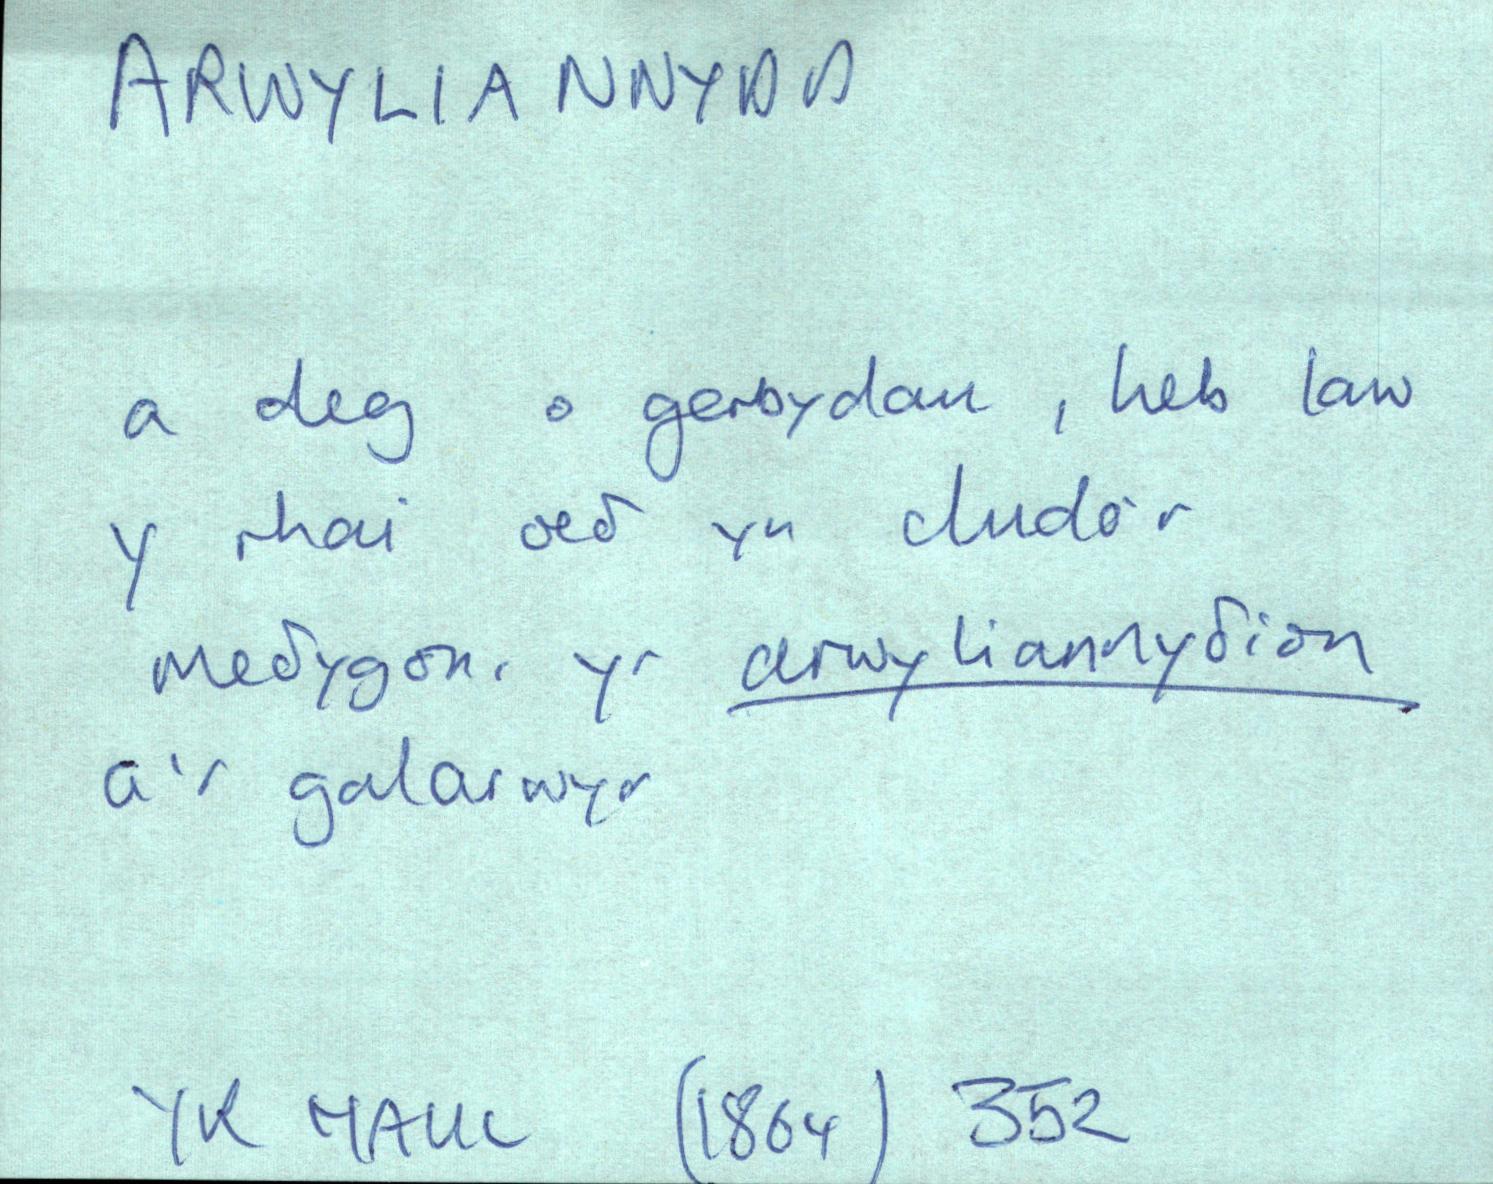 ARWYLIANNYDD
a deg o gerbydau, heb law
y rhai oeð yn cludo'r
meðygon, yr arwyliannyðion
a'r galarwyr
YR HAUL (1864) 352